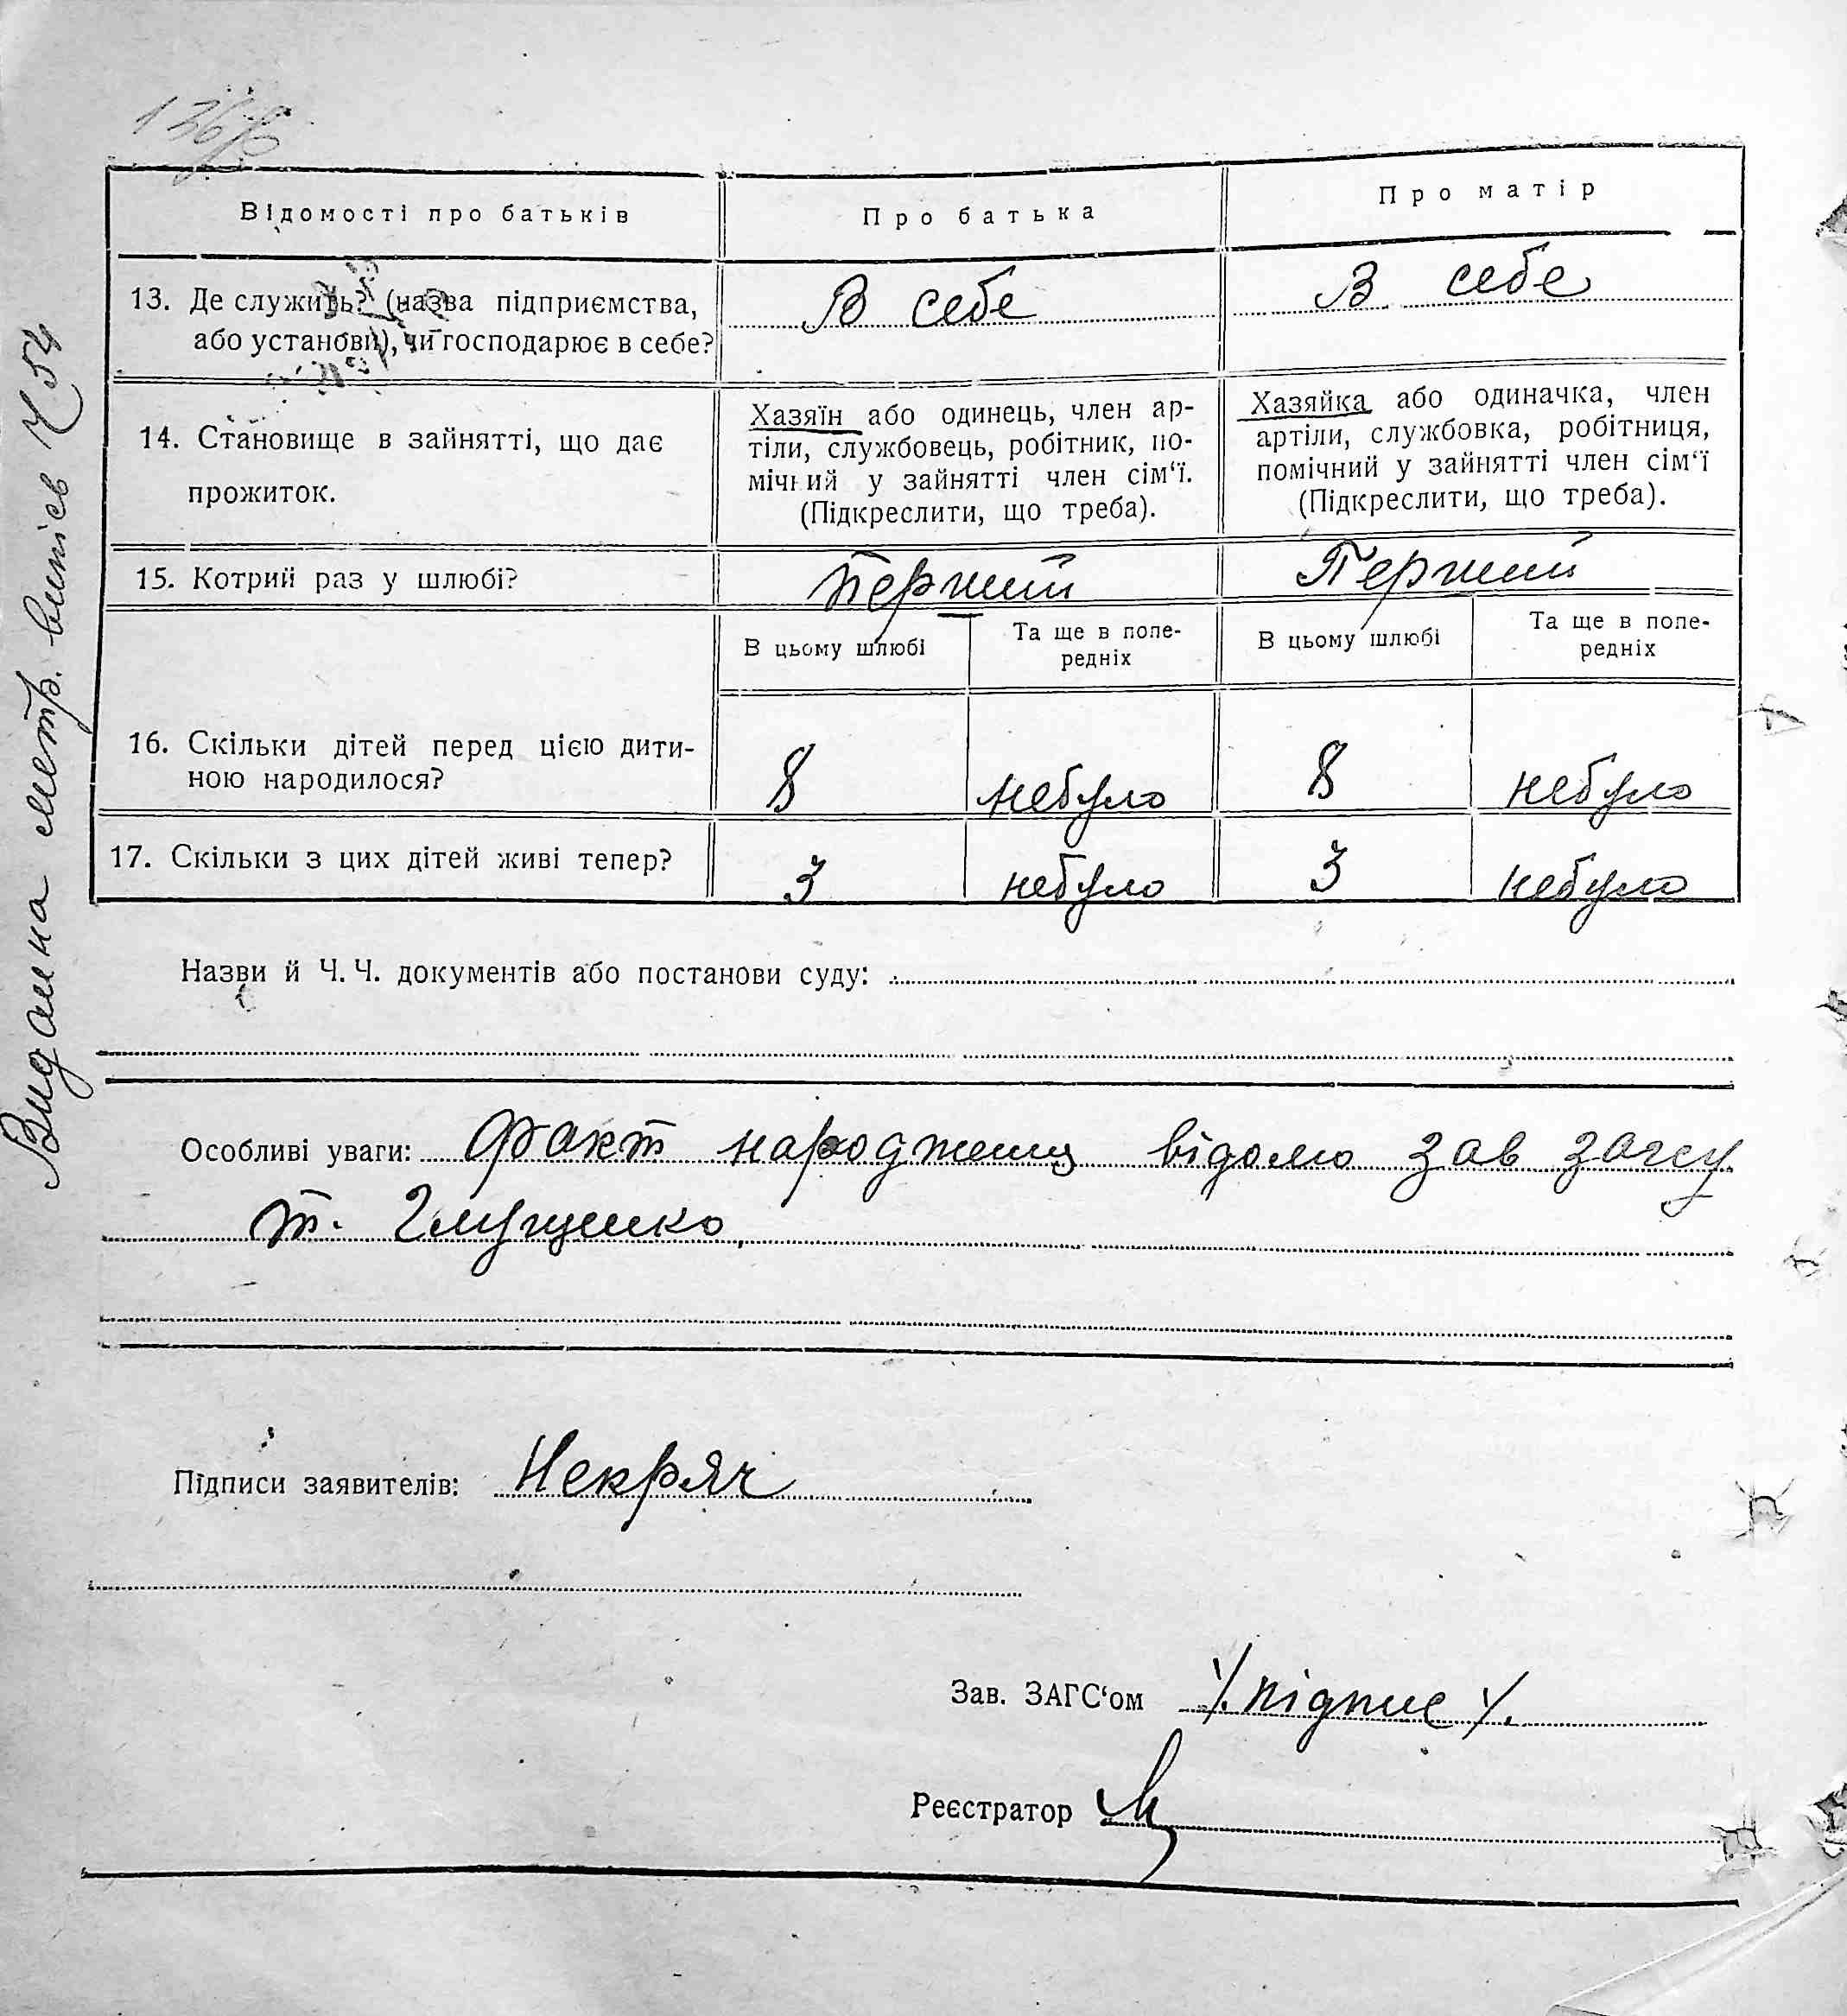 Відомості про батьків
Про батька
Про матір
13. Де служить? (назва підприємства,
або установи), чи господарює в себе?
В себе
В себе
14. Становище в зайнятті, що дає
прожиток.
Хазяїн або одинець, член ар-
тіли, службовець, робітник, по-
мічний у зайнятті член сім'ї.
(Підкреслити, що треба).
Хазяйка або одиначка, член
артіли, службовка, робітниця,
помічний у зайнятті член сім'ї
(Підкреслити, що треба).
15. Котрий раз у шлюбі?
Перший
Перший
В цьому шлюбі
Та ще в попе-
редніх
В цьому шлюбі
Та ще в попе-
редніх
16. Скільки дітей перед цією дити-
ною народилося?
8
небуло
8
небуло
17. Скільки з цих дітей живі тепер?
3
небуло
3
небуло
Назви й Ч. Ч. документів або постанови суду:
Особливі уваги: Факт народження відомо зав загсу
т. Глущенко
Підписи заявителів: Некряч
Зав. ЗАГС'ом /підпис/.
Реєстратор
Видана метр. випись Ч 54